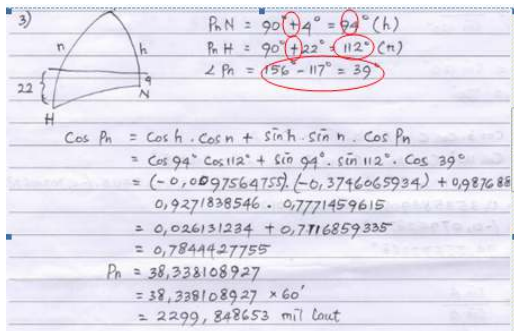 3)
n
h
22
4
N
H
PnN = 90° + 4° = 94° (h)
PnH = 90° + 22° = 112° (n)
∠ Pn = 156° - 117° = 39°
Cos Pn = Cos h . Cos n + sin h . sin n . Cos Pn
= Cos 94° Cos 112° + sin 94° . sin 112° . Cos 39°
= (-0,0697564755) . (-0,3746065934) + 0,987688
0,9271838546 . 0,7771459615
= 0,026131234 + 0,7716859335
= 0,7844427755
Pn = 38,338108927
= 38,338108927 x 60'
= 2299,848653 mil laut